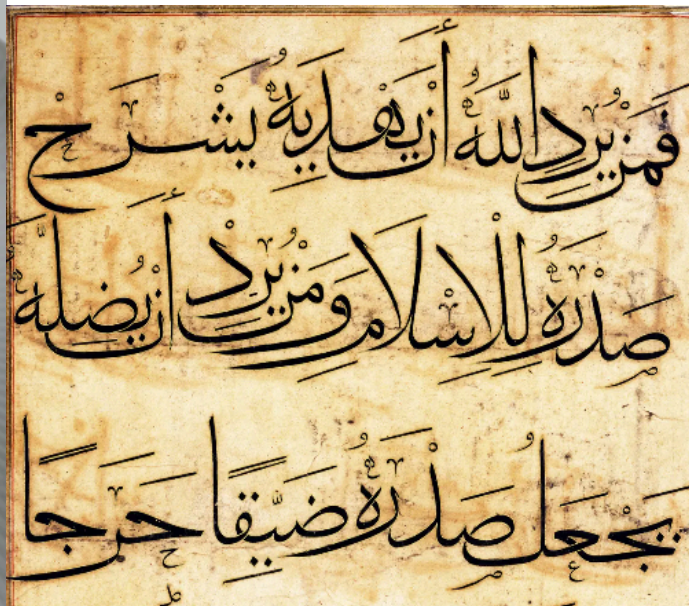 فَمَنْ يُرِدِ اللّٰهُ أَنْ يَهْدِيَهُ يَشْرَحْ
صَدْرَهُ لِلْاِسْلَامِ وَمَنْ يُرِدْ أَنْ يُضِلَّهُ
يَجْعَلْ صَدْرَهُ ضَيِّقًا حَرَجًا